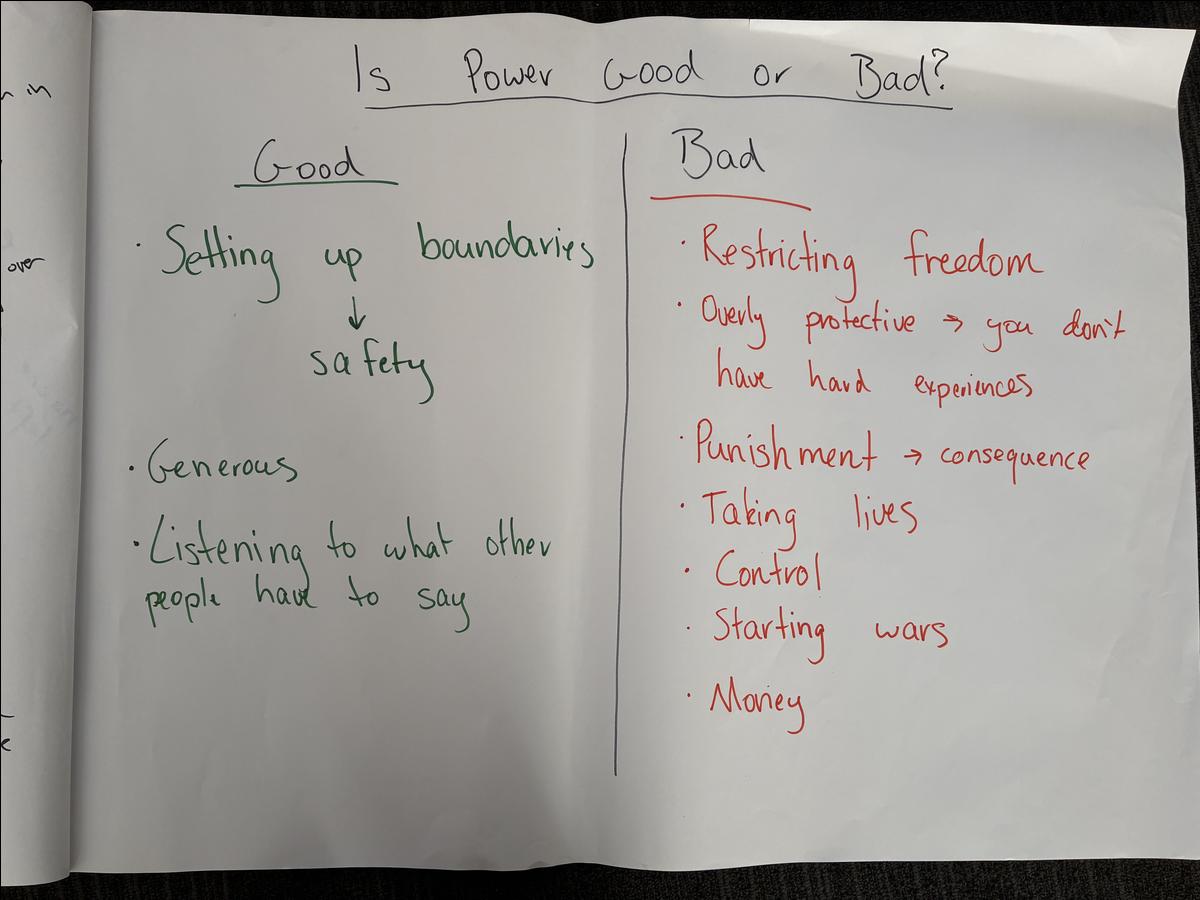 Is Power Good or Bad?
Good
· Setting up boundaries
↓
safety
· Generous
· Listening to what other
people have to say
Bad
· Restricting freedom
· Overly protective → you don't
have hard experiences
· Punishment → consequence
· Taking lives
· Control
· Starting wars
· Money
in
over